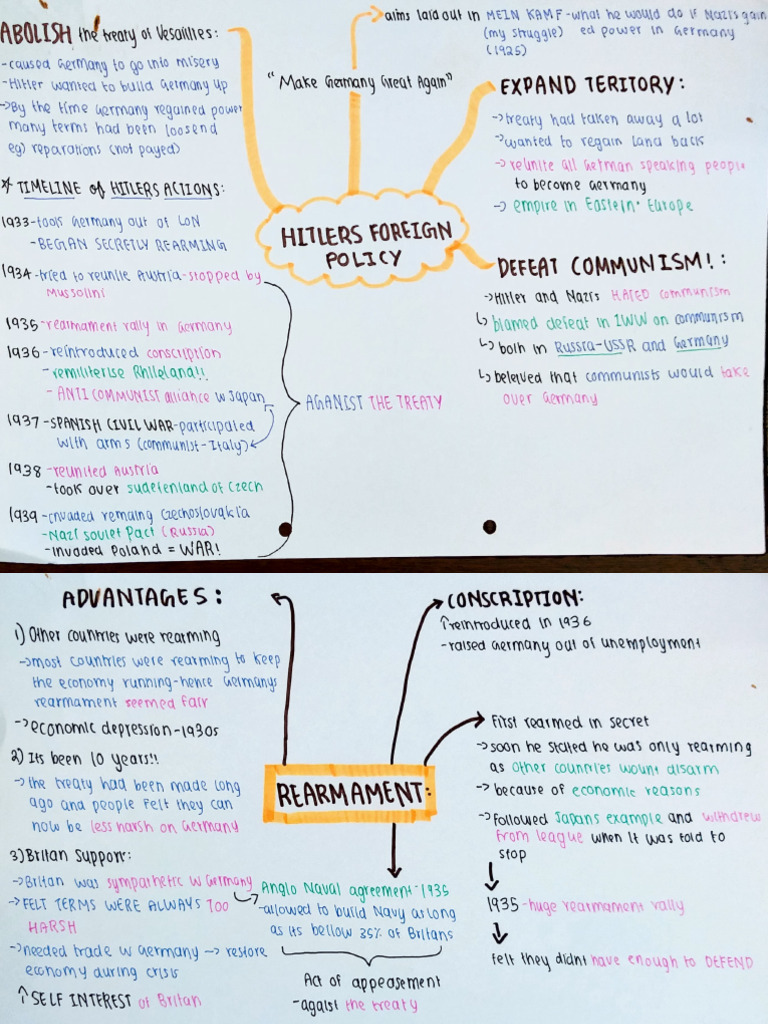 ABOLISH the treaty of Vesailles:
-caused Germany to go into misery
-Hitler wanted to build Germany up
->By the time Germany regained power
many terms had been loosend
eg) reparations (not payed)
* TIMELINE of HITLERS ACTIONS:
1933-took Germany out of LON
-BEGAN SECRETLY REARMING
1934-tried to reunite Austria-stopped by
Mussolini
1935-rearmament rally in Germany
1936-reintroduced conscription
-remiliterise Rhileland!!
-ANTI COMMUNIST alliance w Japan
1937-SPANISH CIVIL WAR-participated
with arms (communist-Italy)
1938-reunited Austria
-took over sudetenland of Czech
1939-invaded remaing Czechoslovakia
-Nazi soviet Pact (Russia)
-invaded Poland = WAR!
AGANIST THE TREATY
aims laid out in MEIN KAMF-what he would do if Nazis gain
(my struggle) ed power in Germany
(1925)
"Make Germany Great Again"
HITLERS FOREIGN
POLICY
EXPAND TERITORY:
->treaty had taken away a lot
->wanted to regain land back
->reunite all German speaking people
to become Germany
->empire in Eastern Europe
DEFEAT COMMUNISM!:
->Hitler and Nazis HATED communism
↳blamed defeat in 1WW on communism
↳both in Russia-USSR and Germany
↳beleived that communists would take
over Germany
ADVANTAGES:
1) Other countries were rearming
->most countries were rearming to keep
the economy running-hence Germanys
rearmament seemed fair
->economic depression-1930s
2) Its been 10 years!!
->the treaty had been made long
ago and people felt they can
now be less harsh on Germany
3) Britan Support:
->Britan was sympathetic w Germany
->FELT TERMS WERE ALWAYS TOO
HARSH
->needed trade w Germany -> restore
economy during crisis
↑SELF INTEREST of Britan
REARMAMENT:
Anglo Naval agreement-1935
-allowed to build Navy as long
as its bellow 35% of Britans
Act of appeasement
-against the treaty
CONSCRIPTION:
↑reintroduced in 1936
-raised Germany out of unemployment
First rearmed in secret
->soon he stated he was only rearming
as other countries wount disarm
->because of economic reasons
->followed Japans example and withdrew
from league when it was told to
stop
1935-huge rearmament rally
felt they didnt have enough to DEFEND